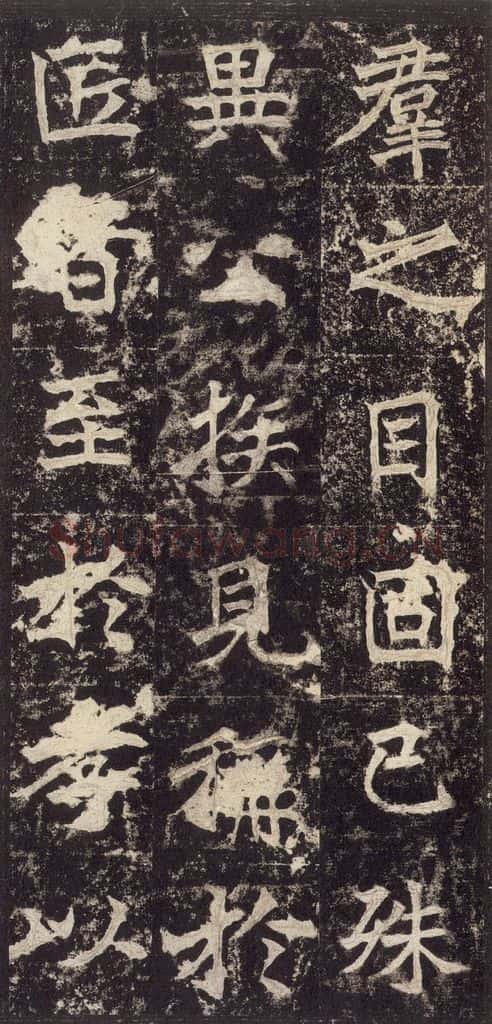 羣之目固已殊
異公族見稱於
匠者至於孝以
Shufawang.cn